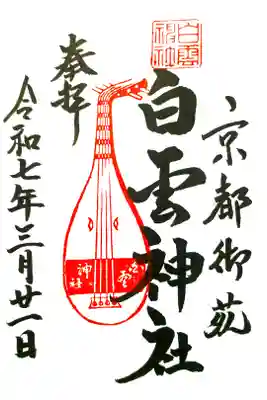 京都御苑
白雲神社
白雲神社
白雲神社
奉拝
令和七年三月廿一日